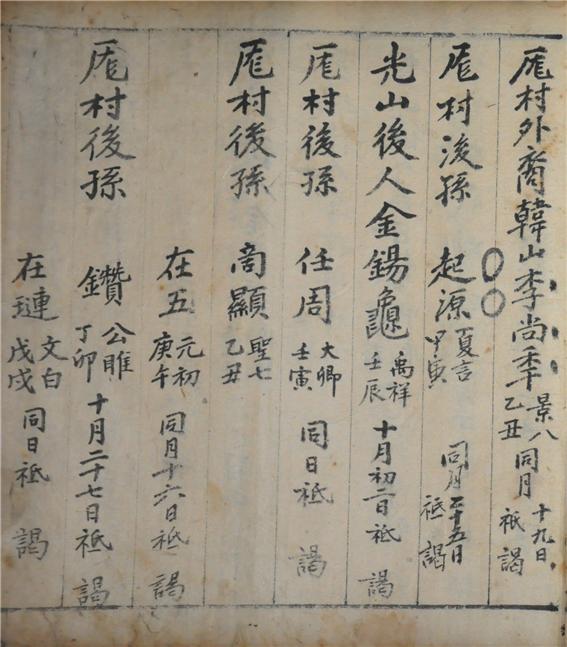 厖村外裔韓山李尚季景八乙丑同月十九日祗謁
厖村後孫起源夏言甲寅同月二十五日祗謁
光山後人金錫龜禹祥壬辰十月初二日祗謁
厖村後孫任周大卿壬寅同日祗謁
厖村後孫啇顯聖七乙丑
在五元初庚午同月十六日祗謁
厖村後孫鑽公雎丁卯十月二十七日祗謁
在璉文白戊戌同日祗謁